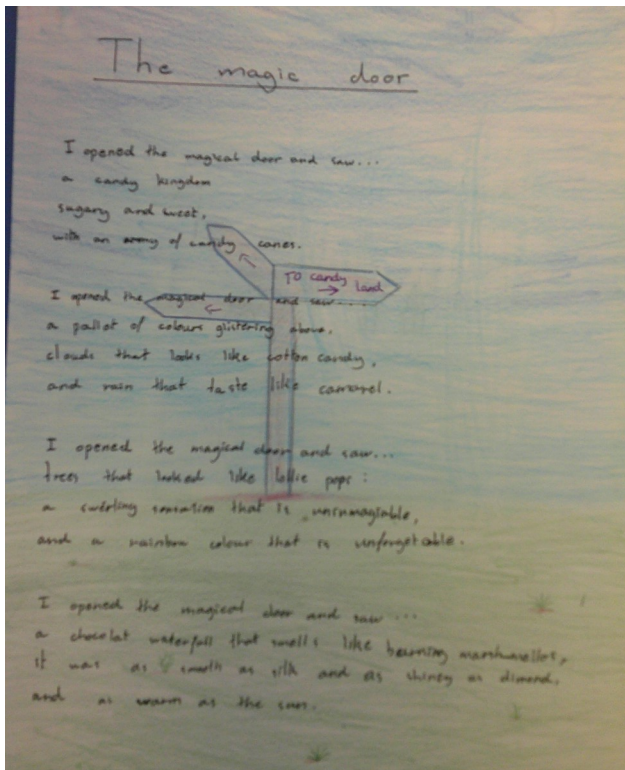 The magic door
I opened the magical door and saw...
a candy kingdom
sugary and sweet,
with an army of candy canes.
TO candy land
I opened the magical door and saw....
a pallot of colours glistering above,
clouds that looks like cotton candy,
and rain that taste like camarel.
I opened the magical door and saw...
trees that looked like lollie pops:
a swirling sensation that is uninmagiable,
and a rainbow colour that is unforgetable.
I opened the magical door and saw...
a chocolat waterfall that smells like bearning marshmellos,
it was as smoth as silk and as shiney as dimond,
and as warm as the sun.